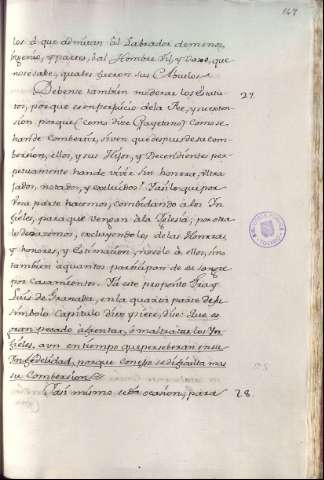 147
los á que admitan âl Labrador de menos,
Ingenio, y partes, ò al Hombre Vil, y Vaxo, que
no se sabe, quales fueron sus Abuelos.
Debense tambien moderar los Estatu- 27
tos, porque es en perjuicio de la Fee, y su exten-
sion porque (como dice Cayetano) Como se
han de Combertir, si ven que despues de sa com-
bersion, ellos, y sus Hijos, y Decendientes per-
petuamente han de vivir sin honrra, ultra
jados, notados, y excluidos? I asi lo que por
Una parte hacemos, combidando à los In-
fieles, para que vengan à la Iglesia; por otra
lo desazemos, excluyendo les de las Honrras
y honores, y Estimacion, no solo à ellos, sino
tambien à quantos participan de su sangre
por Casamientos. Y à este proposito Fray
Luis de Granada, en la quarta parte de el
simbolo Capitulo diez y siete, dice: Que es
gran pecado àfrentar, ô maltratar los In-
fieles, aun en tiempo que perseberan en su
Infidelidad, porque con esso se dificulta mas
su Combersion.
I asi mismo se dà ocasion, para 28.